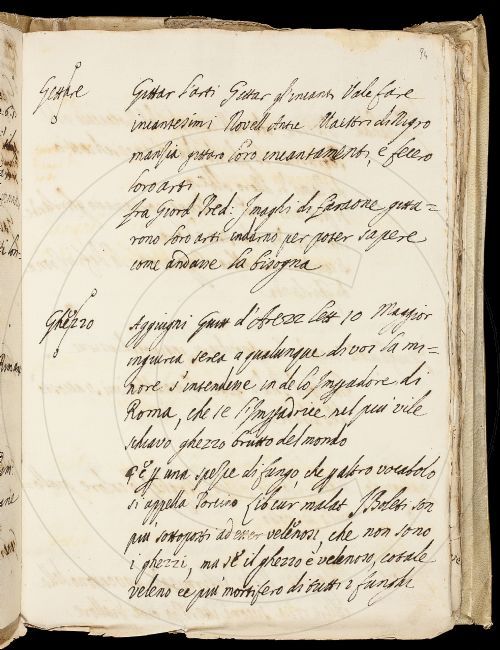 94
Gettare
Gittar l'arti Gettar gl'incanti Vale fare
incantesimi Novell Antic Maestri di Nigro
manzia gittaro loro incantamenti, e fecero
loro arti
fra Giord Pred: I maghi di faraone gitta-
rono loro arti indarno per poter sapere
come andasse la bisogna
Ghezzo
Aggiugni Guitt d'Arezz lett 10 Maggior
ingiuria serea a qualunque di voi la mi-
nore s'intendesse in de lo Impadore di
Roma, che se l'Impadrice nel più vile
schiavo ghezzo brutto del mondo
una spezie di fungo, che altro vocabolo
si appella Porcino Libr cur malat I Boleti son
più sottoposti ad esser velenosi, che non sono
i ghezzi, ma se il ghezzo è velenoso, cotale
veleno ee più mortifero di tutti i funghi